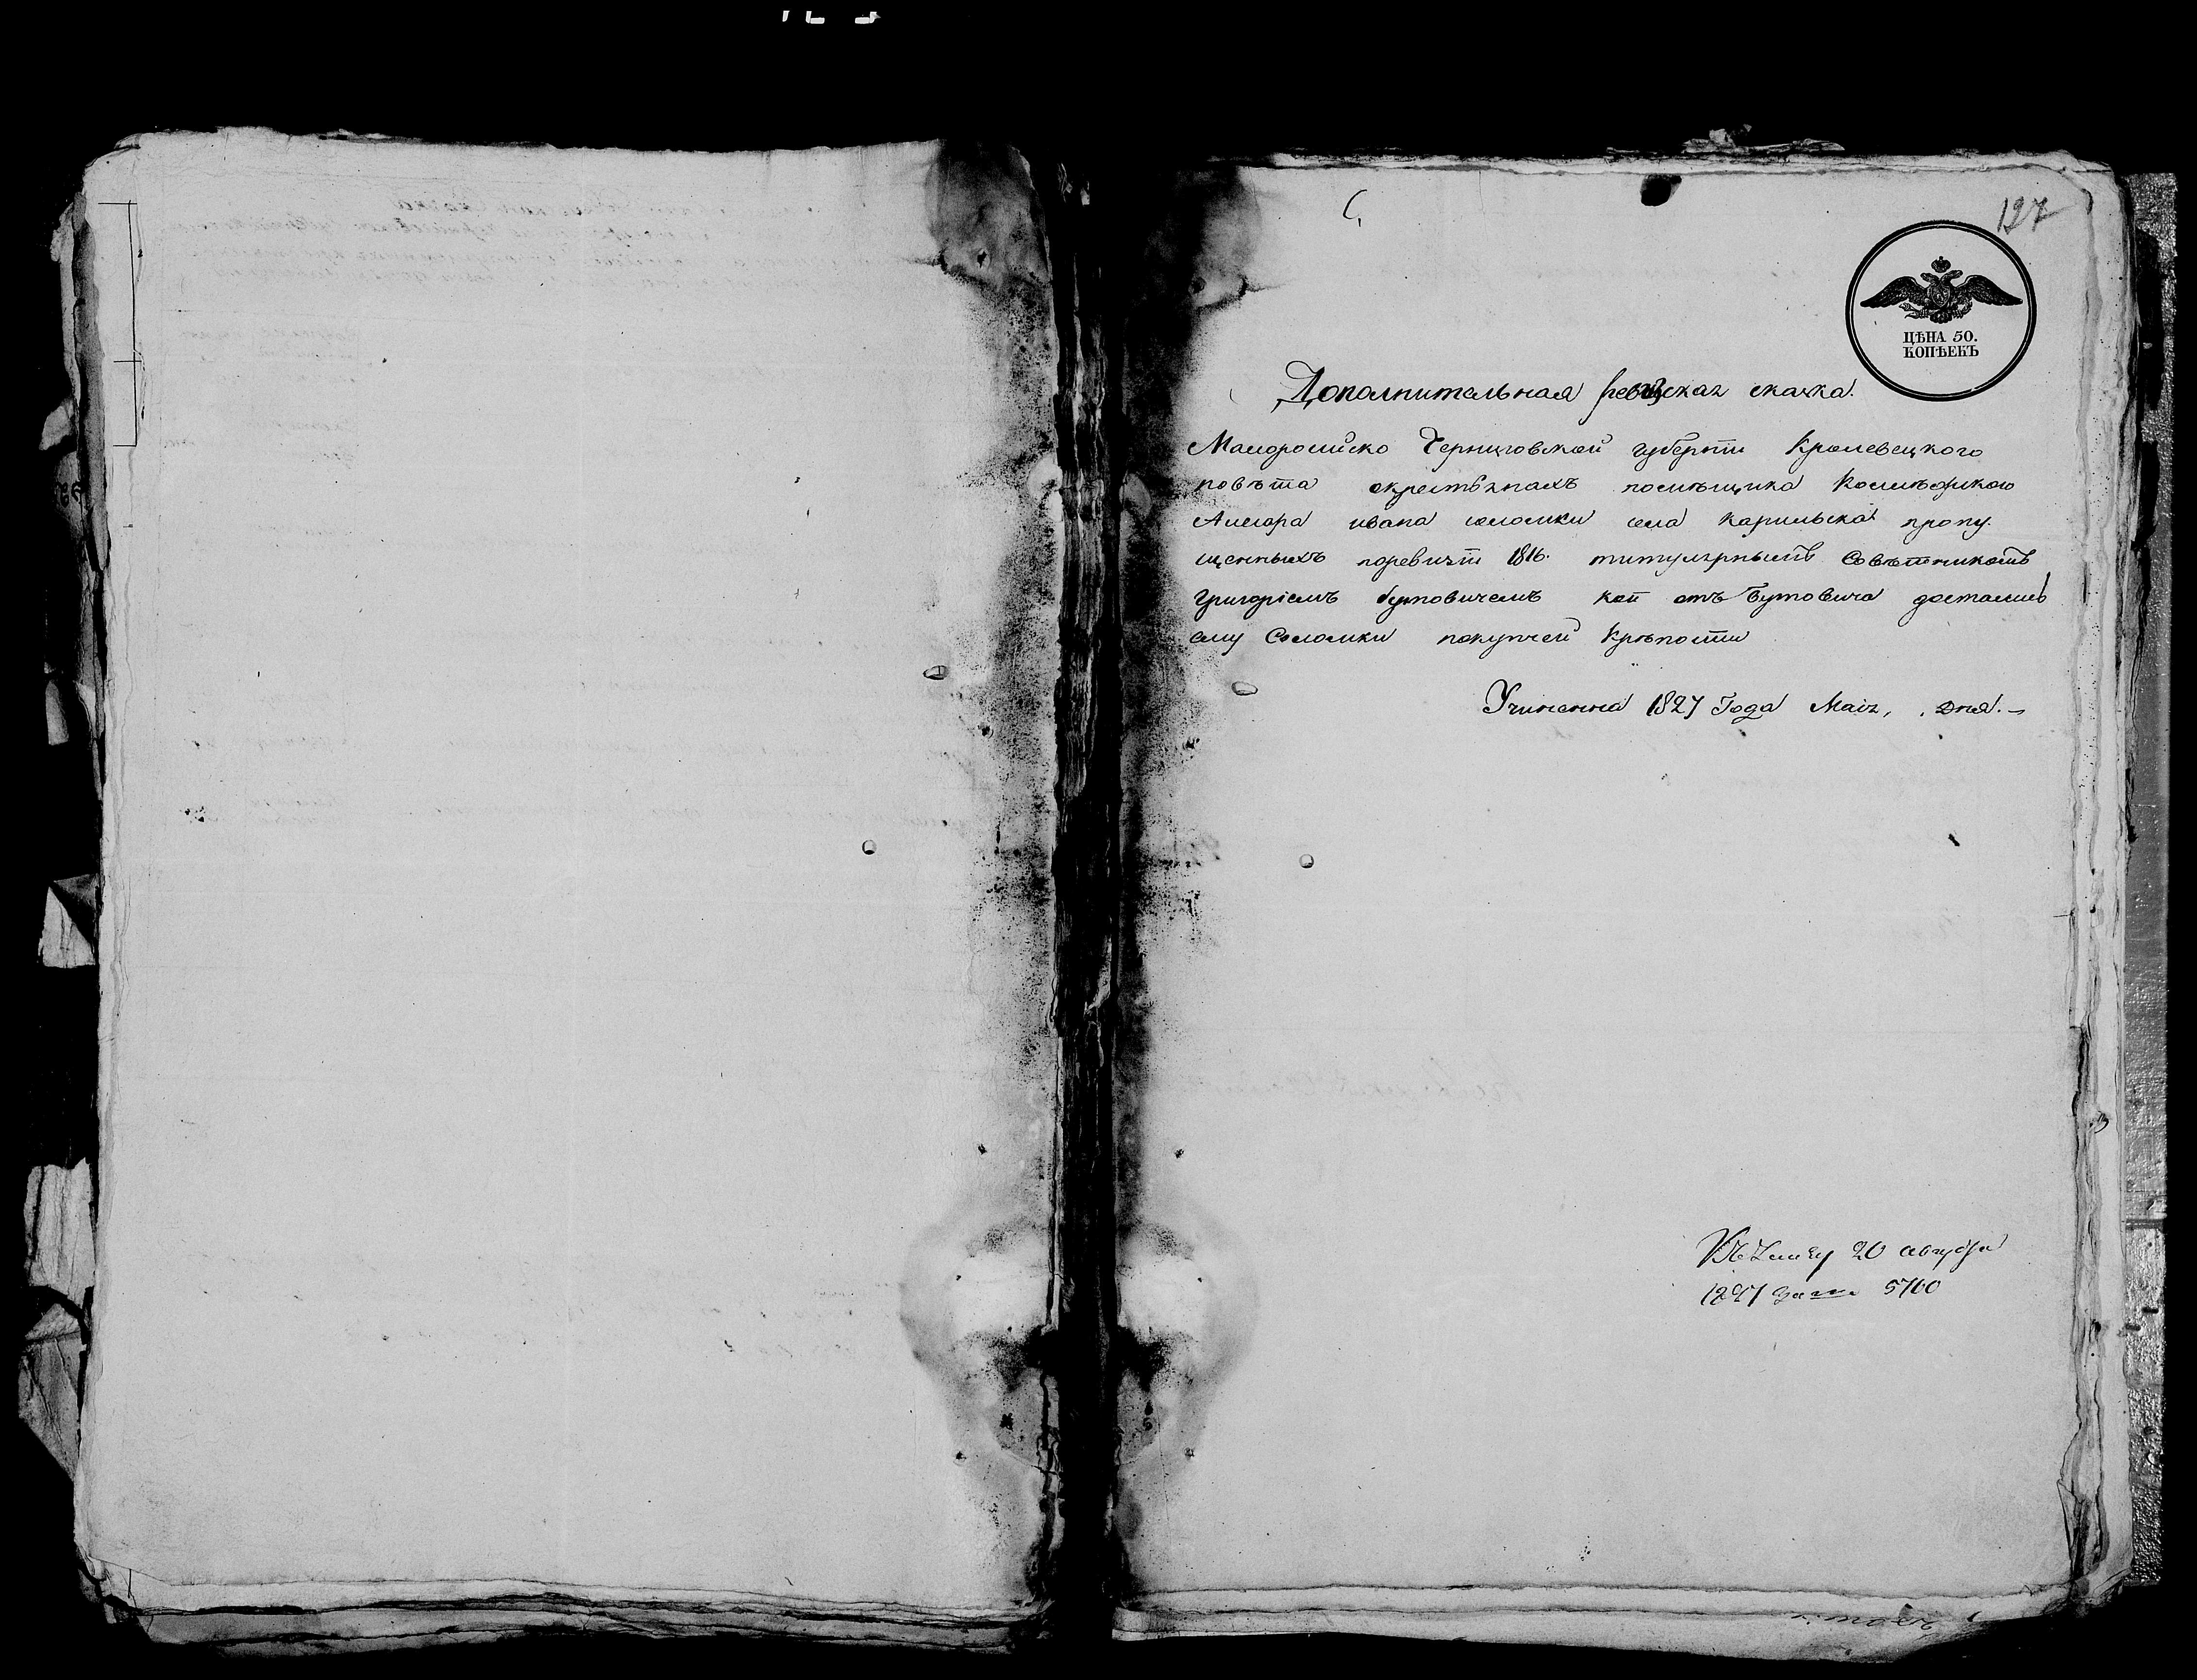 127
ЦѢНА 50.
КОПѢЕКЪ
Дополнительная ревизская сказка.
Малоросийско Черниговской губернти Кролевецкого
повѣта окрестьянахъ помѣщика Колѣжского
Асесора ивана соломки села карильска пропу
щенныхъ поревизти 1816. титулярнымъ Совѣтникомъ
Григоріемъ бутовичемъ кои отъ Бутовича достались
ему Соломки покупчей Крѣпости
Учиненна 1827 Года Маія, дня.
20 августа
1827 5760